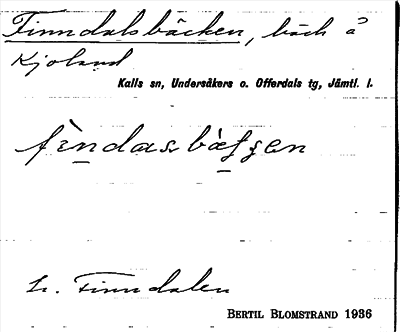 Finndalsbäcken, bäck å
Kjoland
Kalls sn, Undersåkers o. Offerdals tg, Jämtl. l.
fìndasbæ̀kęen
Finndalen
BERTIL BLOMSTRAND 1936